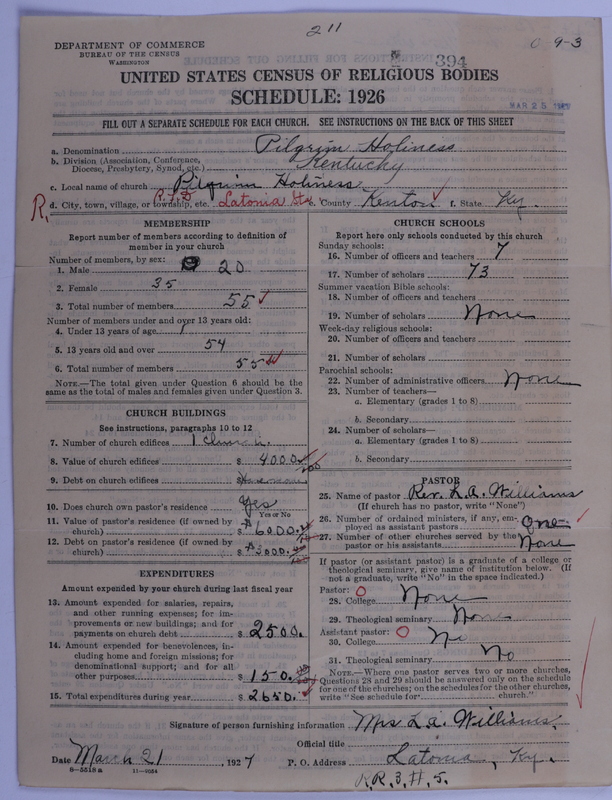 211
C 9-3
DEPARTMENT OF COMMERCE
BUREAU OF THE CENSUS
WASHINGTON
394
UNITED STATES CENSUS OF RELIGIOUS BODIES
MAR 25
SCHEDULE: 1926
FILL OUT A SEPARATE SCHEDULE FOR EACH CHURCH. SEE INSTRUCTIONS ON THE BACK OF THIS SHEET
a. Denomination Pilgrim Holiness
b. Division (Association, Conference, Diocese, Presbytery, Synod, etc.) Kentucky
c. Local name of church Pilgrim Holiness
R. d. City, town, village, or township, etc. Latonia County Kenton f. State Ky.
MEMBERSHIP
Report number of members according to definition of
member in your church
Number of members, by sex:
1. Male 20
2. Female 35
3. Total number of members 55
Number of members under and over 13 years old:
4. Under 13 years of age 1
5. 13 years old and over 54
6. Total number of members 55
NOTE.—The total given under Question 6 should be the
same as the total of males and females given under Question 3.
CHURCH BUILDINGS
See instructions, paragraphs 10 to 12
7. Number of church edifices 1 Church
8. Value of church edifices $ 4000.
9. Debt on church edifices $
10. Does church own pastor's residence Yes
Yes or No
11. Value of pastor's residence (if owned by
church) $ 6000.
12. Debt on pastor's residence (if owned by
church) $ 3000.
EXPENDITURES
Amount expended by your church during last fiscal year
13. Amount expended for salaries, repairs,
and other running expenses; for im-
provements or new buildings; and for
payments on church debt $ 2500.
14. Amount expended for benevolences, in-
cluding home and foreign missions; for
denominational support; and for all
other purposes $ 150.
15. Total expenditures during year $ 2650.
CHURCH SCHOOLS
Report here only schools conducted by this church
Sunday schools:
16. Number of officers and teachers 7
17. Number of scholars 73
Summer vacation Bible schools:
18. Number of officers and teachers
19. Number of scholars None
Week-day religious schools:
20. Number of officers and teachers
21. Number of scholars
Parochial schools:
22. Number of administrative officers None
23. Number of teachers—
a. Elementary (grades 1 to 8)
b. Secondary
24. Number of scholars—
a. Elementary (grades 1 to 8)
b. Secondary
PASTOR
25. Name of pastor Rev. L.A. Williams
(If church has no pastor, write "None")
26. Number of ordained ministers, if any, em-
ployed as assistant pastors one
27. Number of other churches served by the
pastor or his assistants None
If pastor (or assistant pastor) is a graduate of a college or
theological seminary, give name of institution below. (If
not a graduate, write "No" in the space indicated.)
Pastor:
28. College None
29. Theological seminary None
Assistant pastor:
30. College No
31. Theological seminary No
NOTE.—Where one pastor serves two or more churches,
Questions 28 and 29 should be answered only on the schedule
for one of the churches; on the schedules for the other churches,
write "See schedule for church."
Signature of person furnishing information Mrs L.A. Williams.
Official title
Date March 21, 1927 P. O. Address Latonia, Ky.
8-5518 a 11-9054
R.R. 3, H, 5.